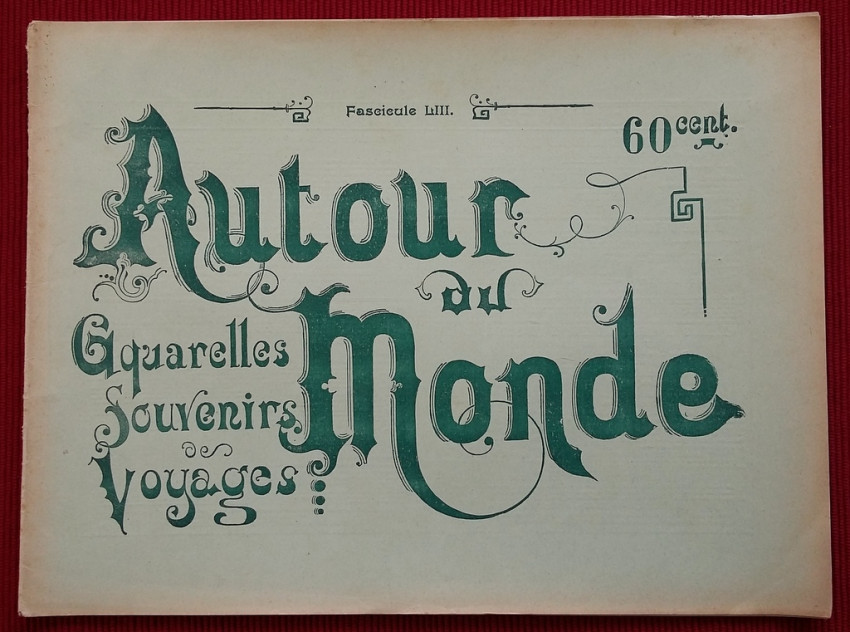 Fascicule LIII.
60 cent.
Autour
du
Monde
Aquarelles
Souvenirs
de
Voyages